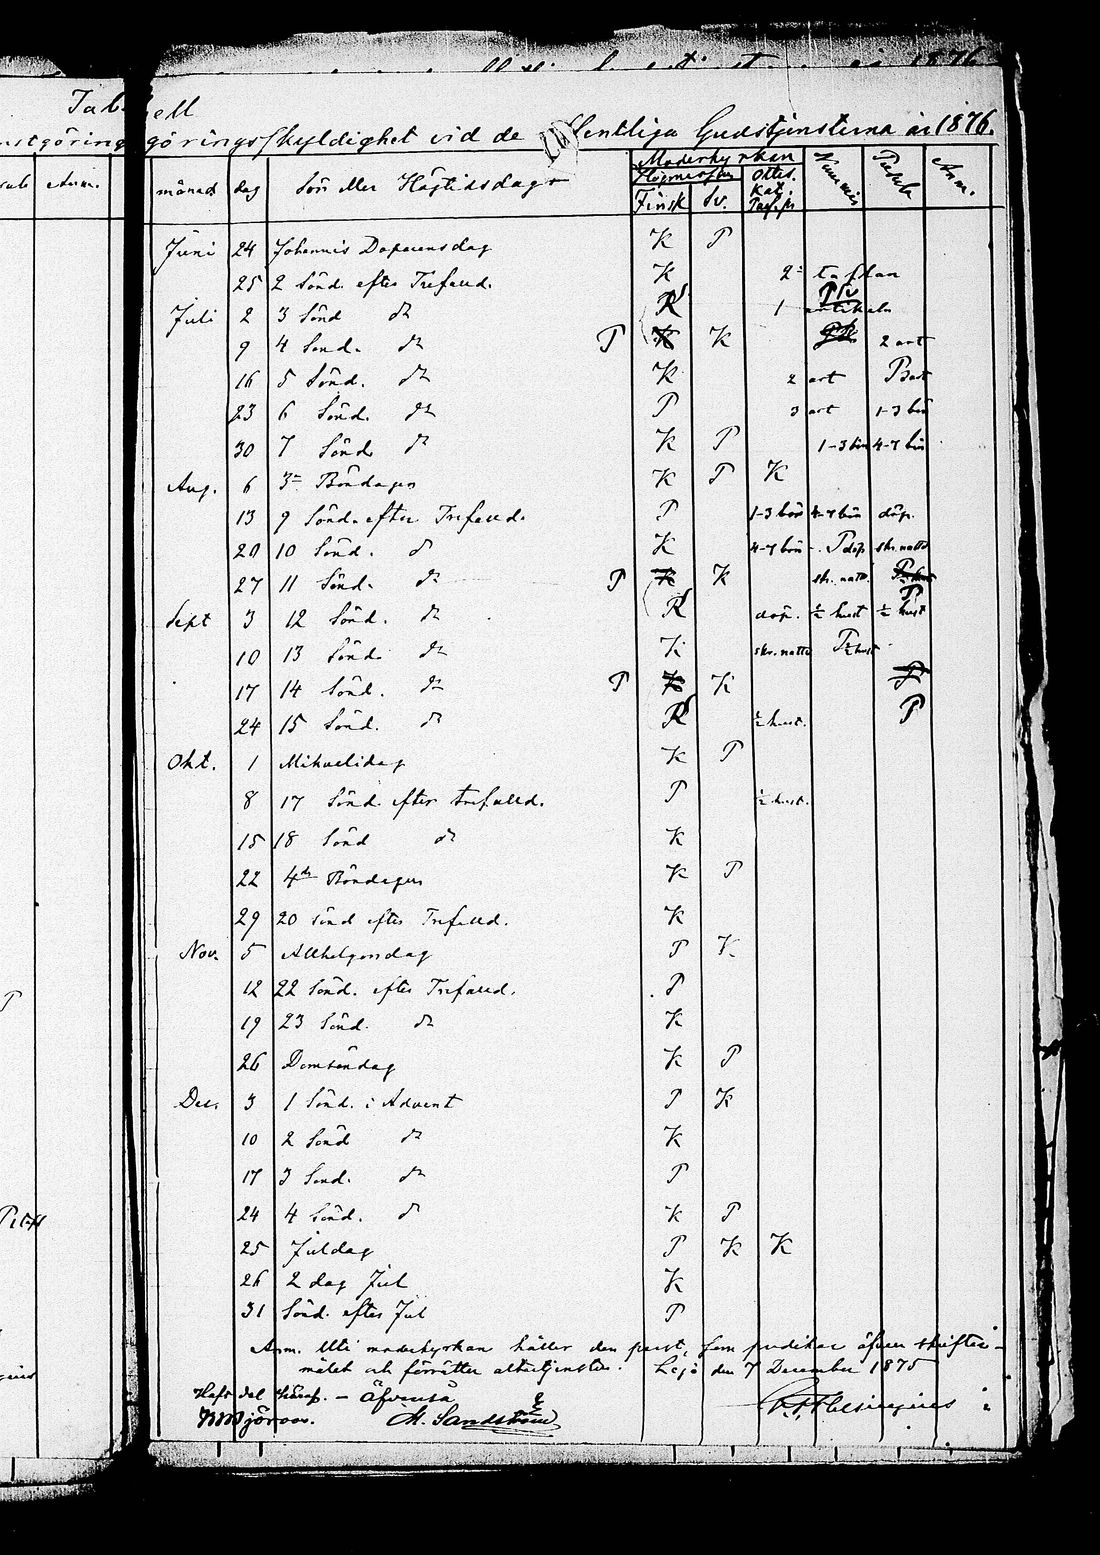 Tabell
görings skyldighet vid de offentliga Gudstjensterna år 1876.
Moderkyrkan
månad dag Sön eller Högtidsdagar Högmessan Ottes. Kat. Nummis Pusula Anm.
Finsk Sv.
Anm.
Juni 24 Johannis Döparensdag K P
25 2 Sönd. efter Trefald. K 2 taflan
Juli 2 3 Sönd do R 1 artikeln
9 4 Sönd. do P K K 2 art
16 5 Sönd. do K 2 art P
23 6 Sönd. do P 3 art 1-3 bön
30 7 Sönd. do K P 1-3 bön 4-7 bön
Aug. 6 3e Böndagen K P K
13 9 Sönd. efter Trefald. P 1-3 bön 4-7 bön döp.
20 10 Sönd. do K 4-7 bön P döp skr. nattv
27 11 Sönd. do P K K skr. nattv.
Sept 3 12 Sönd. do R döp. ½ hust ½ hust P
10 13 Sönd. do K skr. nattv P ½ hust
17 14 Sönd. do P K K P
24 15 Sönd. do R ½ hust. P
Okt. 1 Mikaelidag K P
8 17 Sönd. efter trefald. P ½ hust.
15 18 Sönd do K
22 4de Böndagen K P
29 20 Sönd efter Trefald. K
Nov. 5 Allhelgonadag P K
12 22 Sönd. efter Trefald. P
19 23 Sönd. do K
26 Domsöndag K P
Dec. 3 1 Sönd. i Advent P K
10 2 Sönd do K
17 3 Sönd. do P
24 4 Sönd. do K P
25 Juldag P K K
26 2 dag Jul K
31 Sönd. efter Jul P
Anm. Uti moderkyrkan håller den prest, som predikar äfven skrifte-
målet och förrättar altartjensten. Lojo den 7 December 1875
Äfvenså
M. Sandström